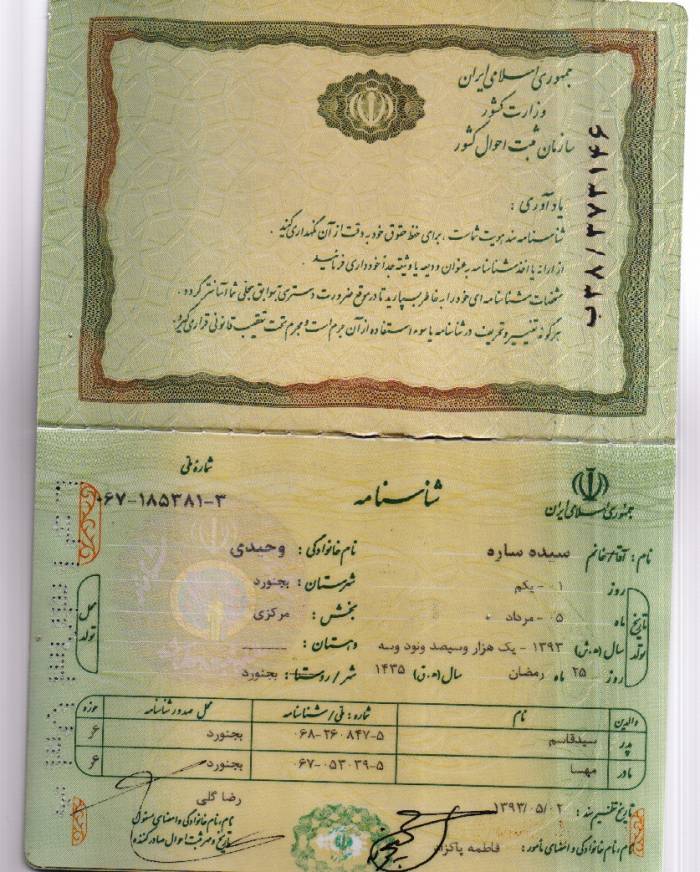 جمهوری اسلامی ایران
وزارت کشور
سازمان ثبت احوال کشور
ب۳۸/۳۷۳۱۴۶
یادآوری :
شناسنامه سند هویت شماست ، برای حفظ حقوق خود به دقت از آن نگهداری کنید .
از ارائه یا اخذ شناسنامه به عنوان ودیعه یا وثیقه جداً خودداری فرمائید .
مشخصات شناسنامه ای خود را به خاطر بسپارید تا در موقع ضرورت دسترسی به سوابق سجلی شما آسانتر گردد .
هرگونه تغییر و تحریف در شناسنامه یا سوء استفاده از آن جرم است و مجرم تحت تعقیب قانونی قرار می گیرد .
جمهوری اسلامی ایران
شناسنامه
شماره ملی
۰۶۷-۱۸۵۳۸۱-۳
نام : آقا/خانم سیده ساره نام خانوادگی : وحیدی
تاریخ تولد
روز ۰۱ - یکم
ماه ۰۵ - مرداد
سال (ه.ش) ۱۳۹۳ - یک هزار وسیصد ونود وسه
روز ۲۵ ماه رمضان سال (ه.ق) ۱۴۳۵
محل تولد
شهرستان : بجنورد
بخش : مرکزی
دهستان : --------
شهر/روستا : بجنورد
والدین نام شماره : ملی / شناسنامه محل صدور شناسنامه حوزه
پدر سیدقاسم ۰۶۸-۲۶۰۸۴۷-۵ بجنورد ۶
مادر مهسا ۰۶۷-۰۵۳۰۳۹-۵ بجنورد ۶
تاریخ تنظیم سند : ۱۳۹۳/۰۵/۰۲
نام، نام خانوادگی و امضای مأمور : فاطمه پاکزاد
رضا گلی
نام، نام خانوادگی و امضای مسئول
تاریخ و مهر ثبت احوال صادر کننده